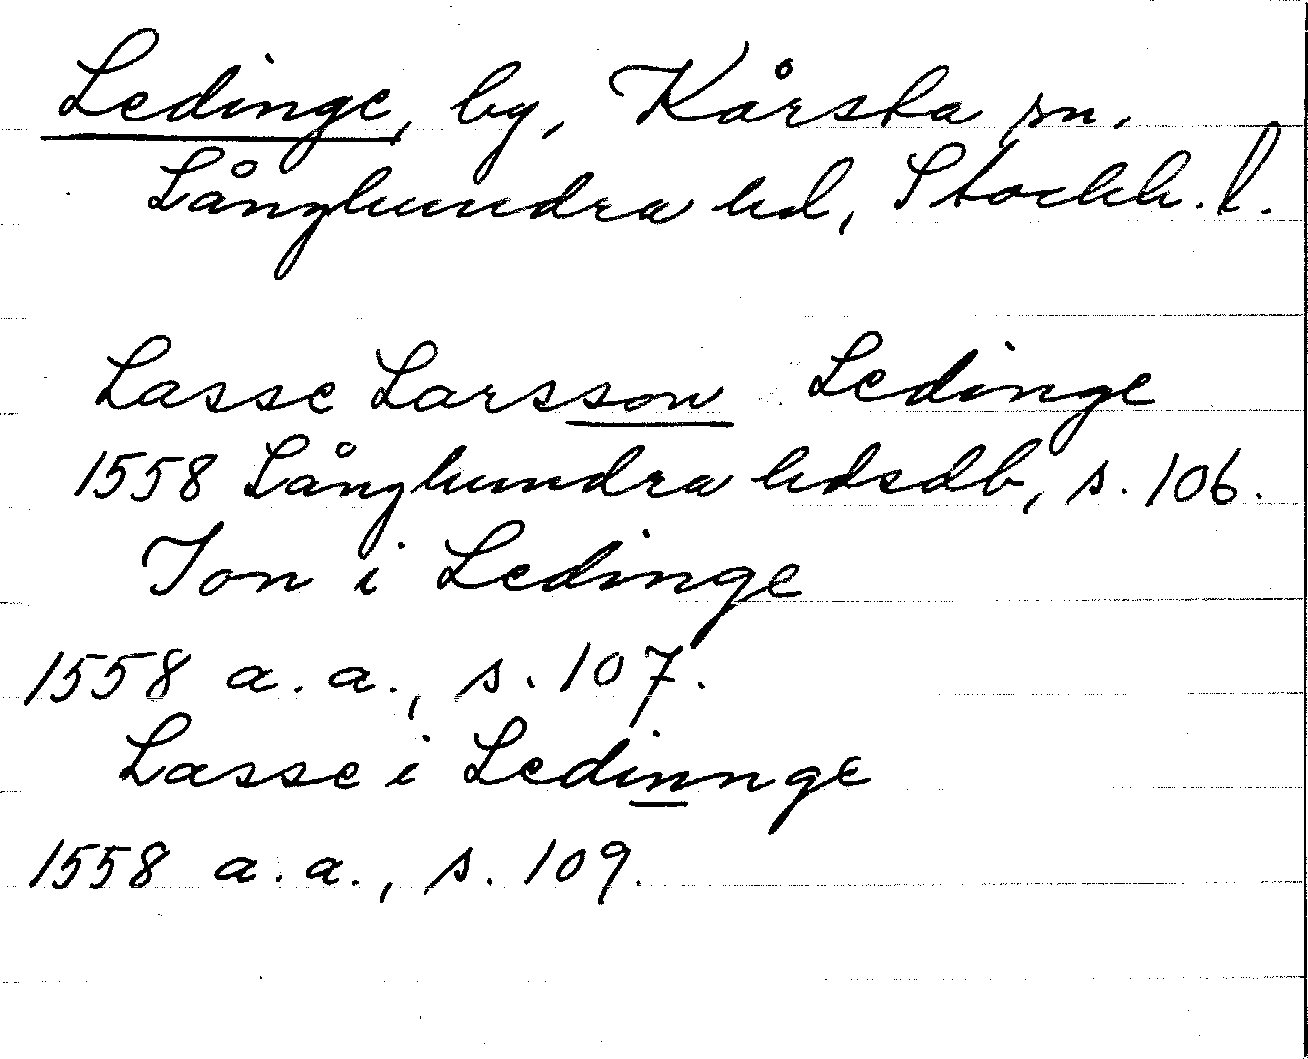 Ledinge, by, Kårsta sn.
Långhundra hd, Stockh. l.
Lasse Larsson Ledinge
1558 Långhundra hdsdb, s. 106.
Jon i Ledinge
1558 a. a., s. 107.
Lasse i Ledinnge
1558 a. a., s. 109.